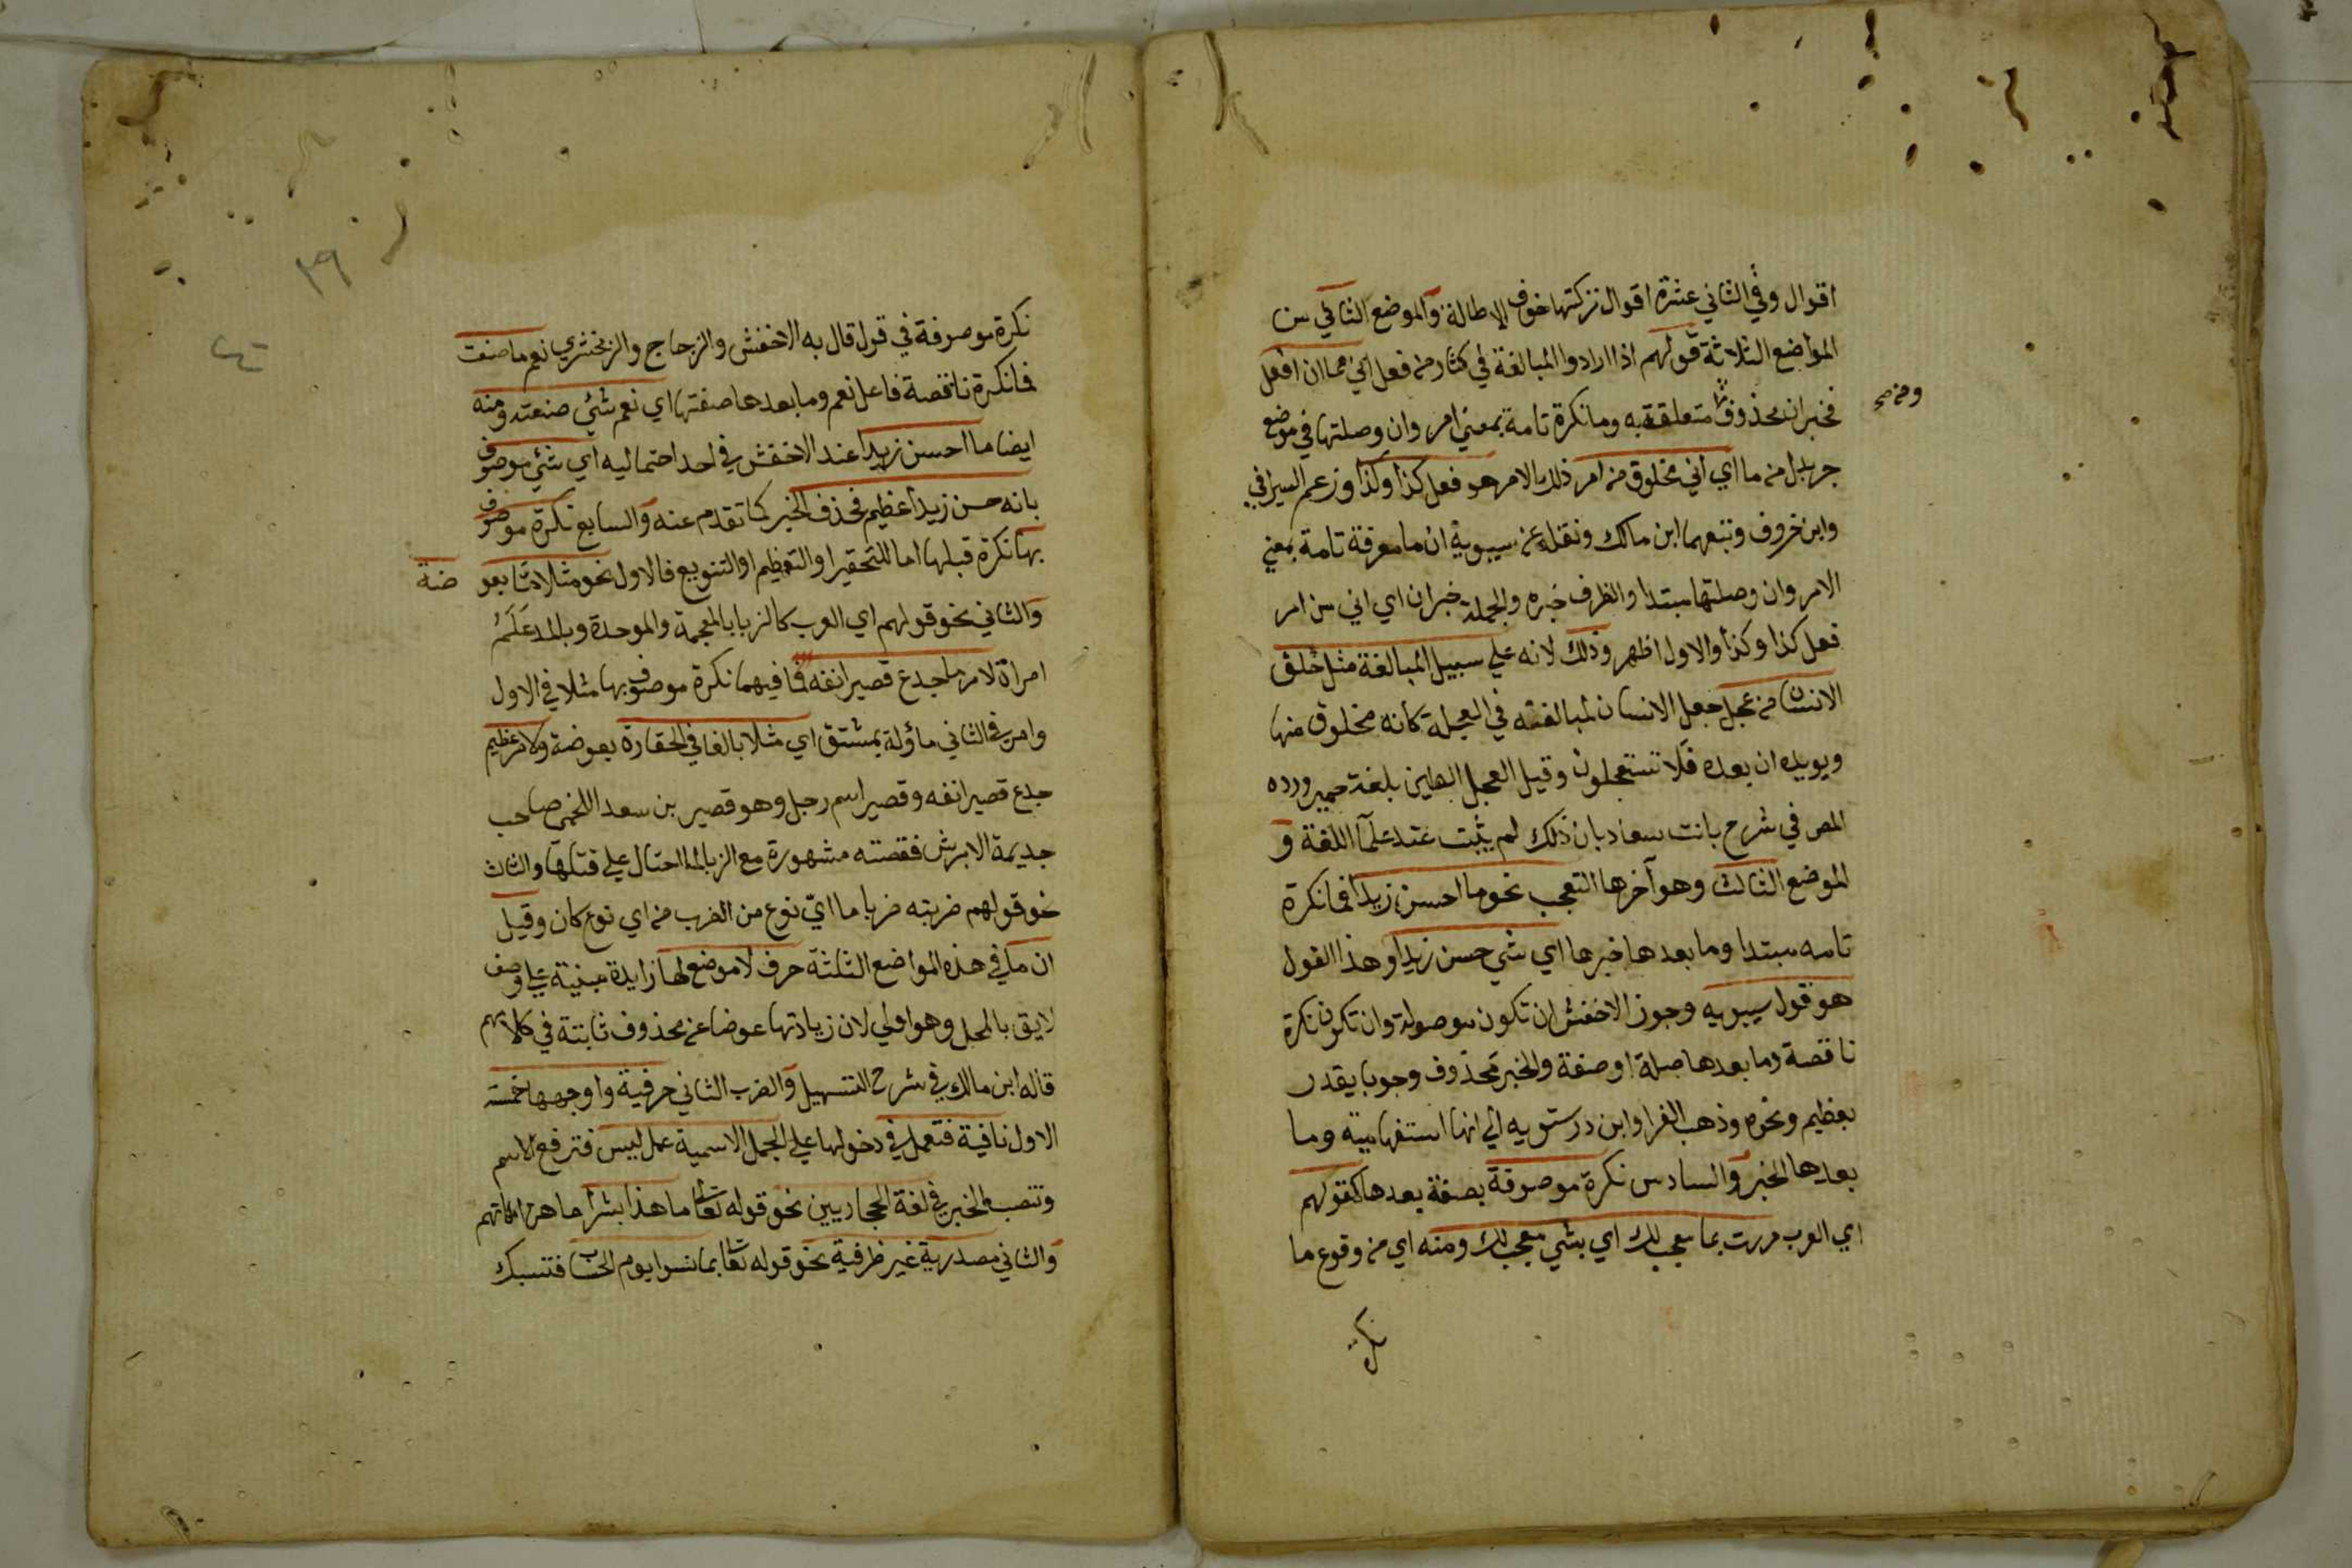 اقوال وفي الثاني عشرة اقوال تركتها خوف الاطالة والموضع الثاني من
المواضع الثلاثة قولهم اذا ارادوا المبالغة في كثار من فعل اني مما ان افعل
فخبر ان محذوف متعلقة به وما نكرة تامة بمعني امر وان وصلتها في موضع
ومن صح
جر بدل من ما اي اني مخلوق من امر ذلك الامر هو فعل كذا وكذا وزعم السيرافي
وابن خروف وتبعهما ابن مالك ونقله عن سيبويه ان ما معرفة تامة بمعني
الامر وان وصلتها مبتدا والظرف خبره والجملة خبر ان اي اني من امر
فعل كذا وكذا والاول اظهر وذلك لانه علي سبيل المبالغة مثل خلق
الانسان من عجل جعل الانسان لمبالغته في العجلة كانه مخلوق منها
ويويده ان بعده فلا تستعجلون وقيل العجل الطين بلغة حمير ورده
المص في شرح بانت سعاد بان ذلك لم يثبت عند علما اللغة و
الموضع الثالث وهو آخرها التعجب نحو ما احسن زيدا فما نكرة
تامه مبتدا وما بعدها خبرها اي شي حسن زيدا وهذا القول
هو قول سيبويه وجوز الاخفش ان تكون موصولة وان تكون نكرة
ناقصة وما بعدها صلة او صفة والخبر محذوف وجوبا يقدر
بعظيم ونحوه وذهب الفرا وابن درستويه الي انها استفهامية وما
بعدها الخبر والسادس نكرة موصوفة بصفة بعدها كقولهم
اي العرب مررت بما معجب لك اي بشي معجب لك ومنه اي من وقوع ما
نكرة
نكرة موصوفة في قول قال به الاخفش والزجاج والزمخشري نعم ما صنعت
فما نكرة ناقصة فاعل نعم وما بعدها صفتها اي نعم شئ صنعته ومنه
ايضا ما احسن زيدا عند الاخفش في احد احتماليه اي شئ موصوف
بانه حسن زيدا عظيم فحذف الخبر كما تقدم عنه والسابع نكرة موصوف
بها نكرة قبلها اما للتحقير او التعظيم او التنويع فالاول نحو مثلا ما بعو ضة
والثاني نحو قولهم اي العرب كالزبا بالمعجمة والموحدة وبالمد علم
امراة لامر ما جدع قصير انفه فما فيهما نكرة موصوف بها مثلا في الاول
وامر في الثاني ماؤلة بمشتق اي مثلا بالغا في الحقارة بعوضة ولامر عظيم
جدع قصير انفه وقصير اسم رجل وهو قصير بن سعد اللخمي صاحب
جديمة الابرش فقصته مشهورة مع الزبا لما احتال علي قتلها والثالث
نحو قولهم ضربته ضربا ما اي نوع من الضرب من اي نوع كان وقيل
ان ما في هذه المواضع الثلثة حرف لا موضع لها زايدة مبنية علي وصف
لايق بالمحل وهو اولي لان زيادتها عوضا عن محذوف ثابتة في كلامهم
قاله ابن مالك في شرح التسهيل والضرب الثاني حرفية واوجهها خمسة
الاول نافية فتعمل في دخولها علي الجمل الاسمية عمل ليس فترفع الاسم
وتنصب الخبر في لغة الحجازيين نحو قوله تعا ما هذا بشرا ما هن امهاتهم
والثاني مصدرية غير ظرفية نحو قوله تعا بما نسوا يوم الحساب فتسبك
٣٩